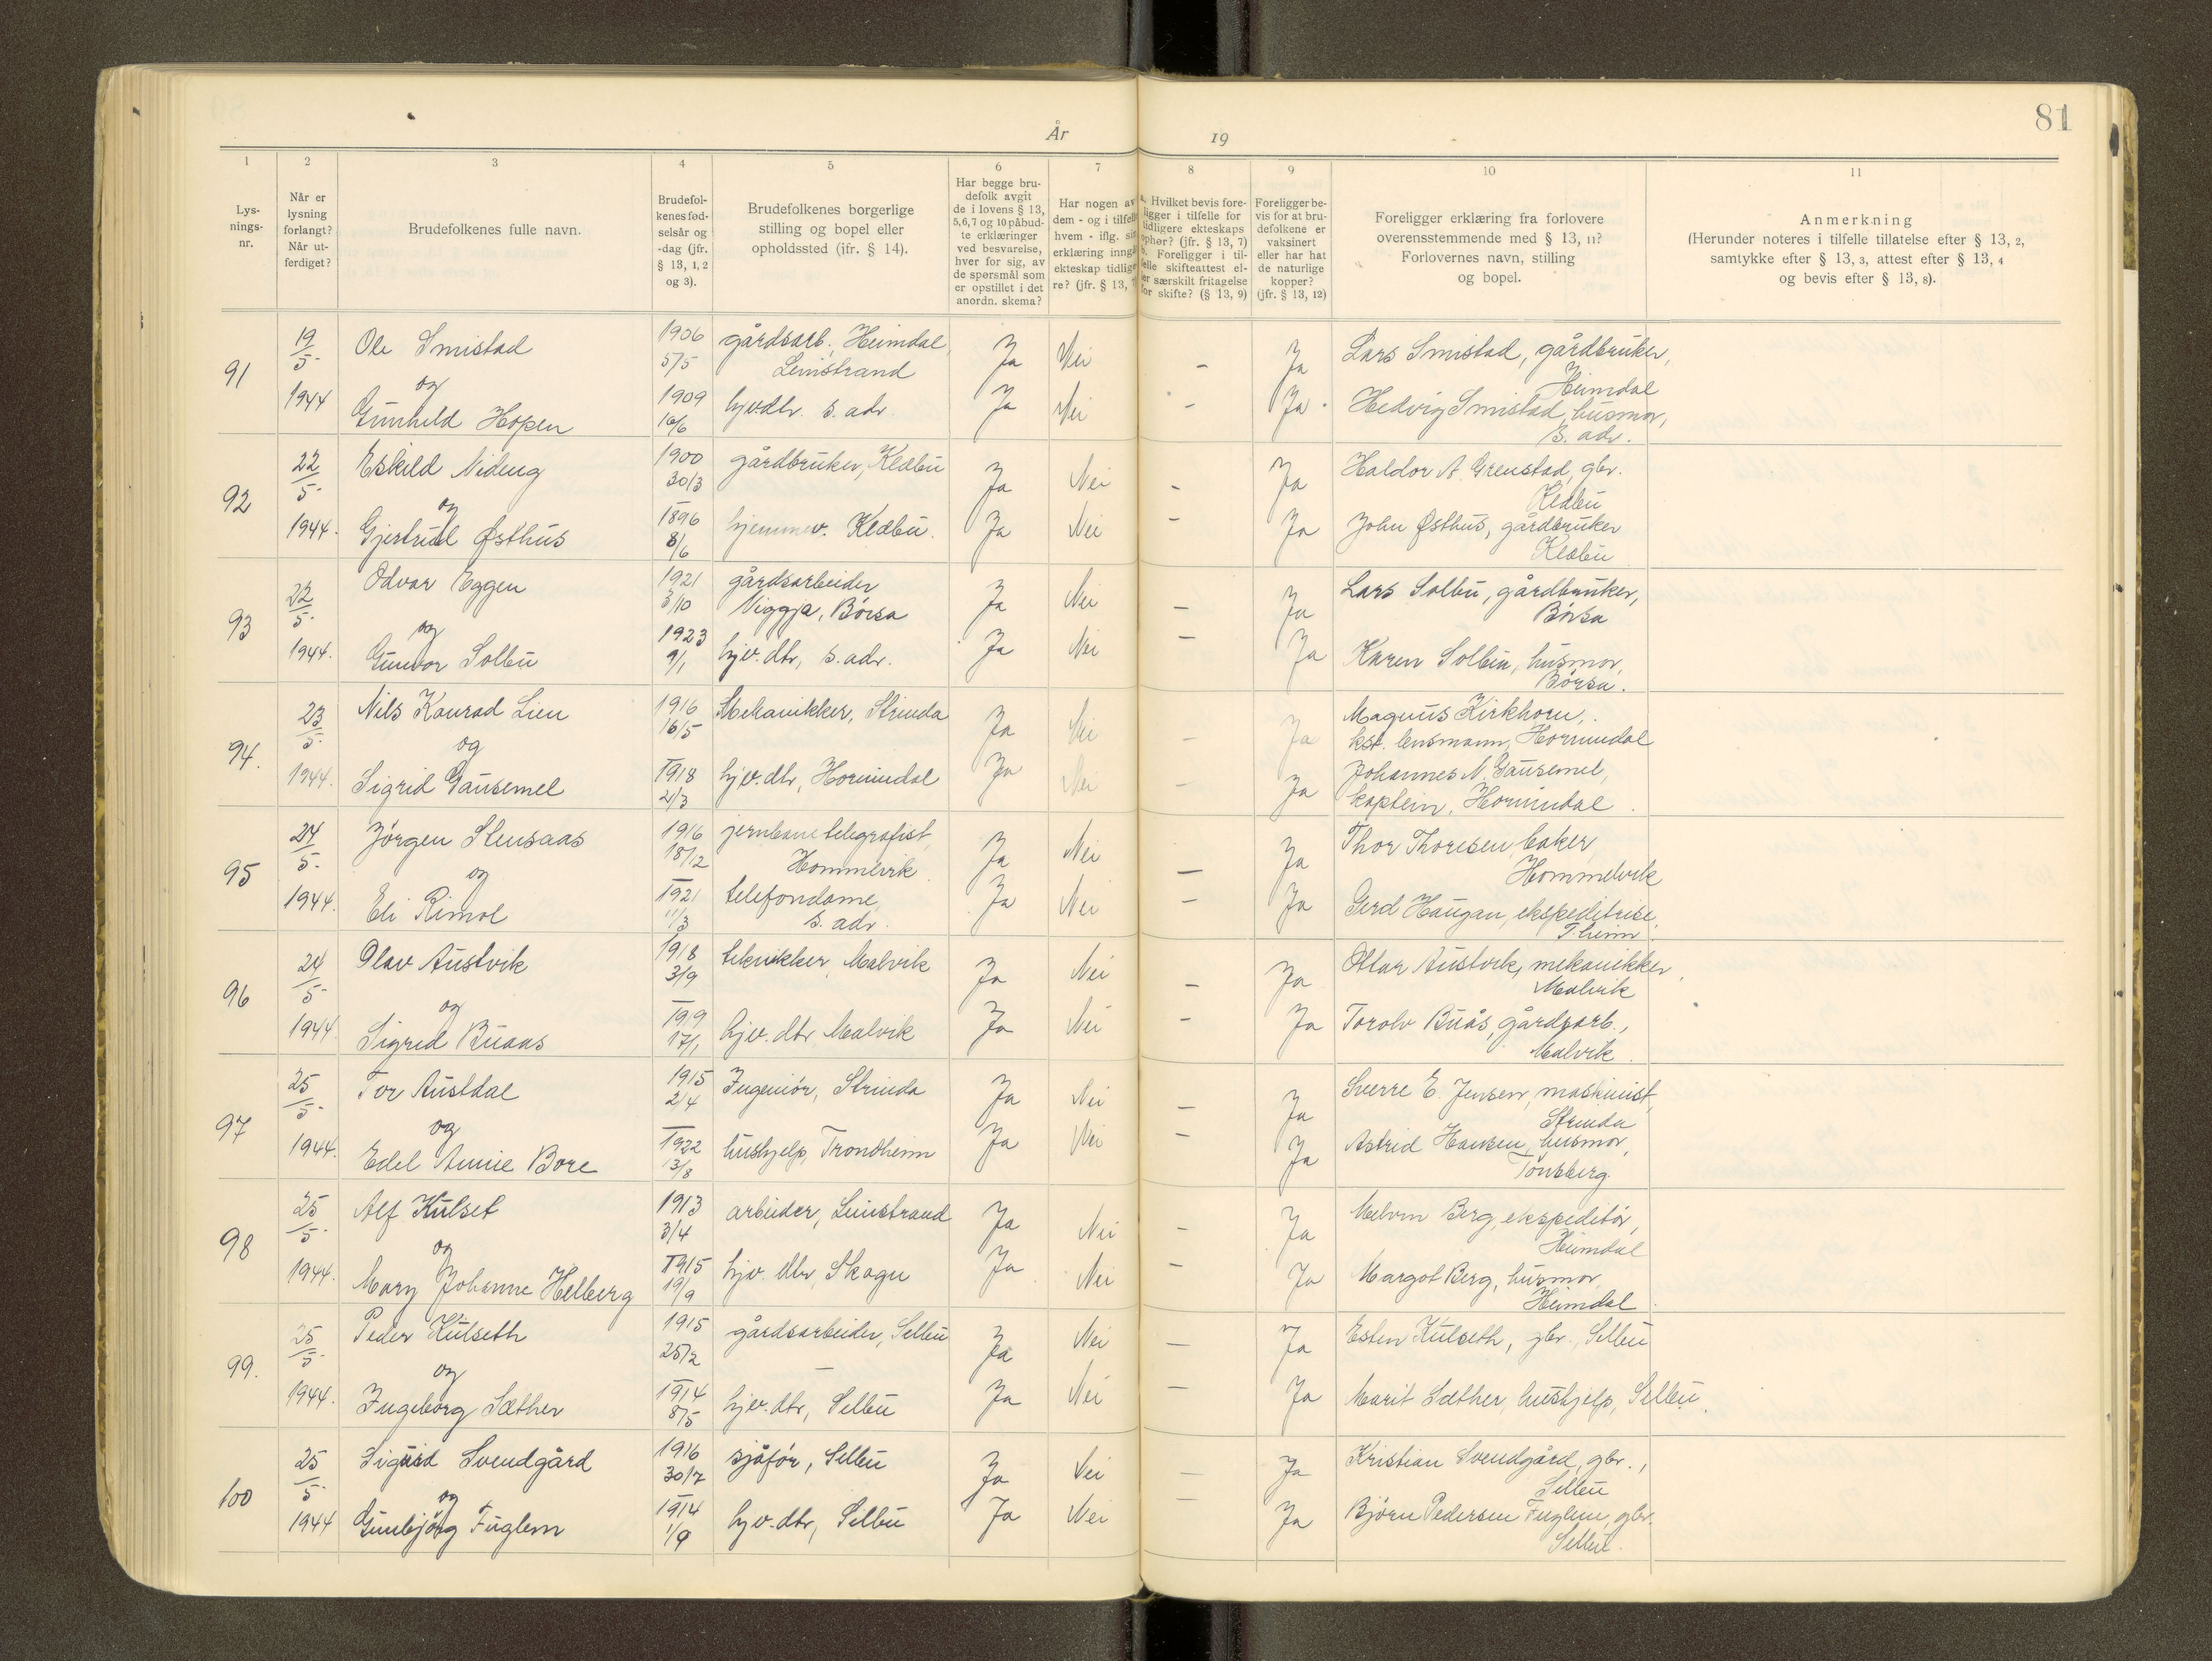 81
År 19
1 2 3 4 5 6 7 8 9 10 11
Lys-
nings-
nr.
Når er
lysning
forlangt?
Når ut-
ferdiget?
Brudefolkenes fulle navn.
Brudefol-
kenes fød-
selsår og
-dag (jfr.
§ 13, 1, 2
og 3).
Brudefolkenes borgerlige
stilling og bopel eller
opholdssted (jfr. § 14).
Har begge bru-
defolk avgit
de i lovens § 13,
5,6,7 og 10 påbud-
te erklæringer
ved besvarelse,
hver for sig, av
de spørsmål som
er opstillet i det
anordn. skema?
Har nogen av
dem - og i tilfelle
hvem - iflg. sin
erklæring inngå
ekteskap tidlige-
re? (jfr. § 13, 7
a. Hvilket bevis fore-
ligger i tilfelle for
tidligere ekteskaps
ophør? (jfr. § 13, 7)
b. Foreligger i til-
felle skifteattest el-
er særskilt fritagelse
for skifte? (§ 13, 9)
Foreligger be-
vis for at bru-
defolkene er
vaksinert
eller har hat
de naturlige
kopper?
(jfr. § 13, 12)
Foreligger erklæring fra forlovere
overensstemmende med § 13, 11?
Forlovernes navn, stilling
og bopel.
Anmerkning
(Herunder noteres i tilfelle tillatelse efter § 13, 2,
samtykke efter § 13, 3, attest efter § 13, 4
og bevis efter § 13, 8).
91 19/5- 1944
Ole Smistad 1906 5/5 gårdsarb. Heimdal, Leinstrand Ja Nei - Ja Lars Smistad, gårdbruker, Heimdal
og
Gunhild Hopen 1909 16/6 hjvdtr. s. adr. Ja Nei - Ja. Hedvig Smistad, husmor, s. adr.
92 22/5- 1944.
Eskild Nideng 1900 30/3 gårdbruker, Klæbu Ja Nei - Ja Haldor A. Grenstad, gbr. Klæbu
og
Gjertrud Østhus 1896 8/6 hjemmev. Klæbu. Ja Nei - Ja John Østhus, gårdbruker Klæbu
93 22/5- 1944.
Odvar Eggen 1921 3/10 gårdsarbeider Viggja, Börsa Ja Nei - Ja Lars Solbu, gårdbruker, Börsa
og
Gunvor Solbu 1923 9/1 hjv. dtr, s. adr. Ja Nei - Ja Karen Solbu, husmor, Börsa.
94. 23/5- 1944.
Nils Konrad Lien 1916 16/5 Mekanikker, Strinda Ja Nei - Ja Magnus Kirkhorn, kst. lensmann, Hornindal
og
Sigrid Gausemel 1918 21/3 hjv. dtr, Hornindal Ja Nei - Ja Johannes N. Gausemel, kaptein, Hornindal.
95 24/5- 1944.
Jörgen Stensaas 1916 18/12 jernbanetelegrafist, Hommelvik Ja Nei - Ja Thor Thoresen, baker, Hommelvik
og
Eli Rimol 1921 11/3 telefondame, s. adr. Ja Nei - Ja Gerd Haugan, ekspeditrise, T.heim.
96 24/5- 1944
Olav Austvik 1918 3/9 tekniker Malvik Ja Nei - Ja Ottar Austvik, mekanikker, Malvik
og
Sigrid Buaas 1919 17/1 hjv. dtr Malvik Ja Nei - Ja Torolv Buås, gårdsarb., Malvik.
97 25/5- 1944.
Tor Austdal 1915 2/4 Ingeniör, Strinda Ja Nei - Ja Sverre E. Jensen, maskinist, Strinda
og
Edel Annie Bore 1922 13/8 hushjelp, Trondheim Ja Nei - Ja Astrid Hansen, husmor, Tönsberg.
98 25/5- 1944.
Alf Kulset 1913 3/4 arbeider, Leinstrand Ja Nei - Ja Melvin Berg, ekspeditör, Heimdal
og
Mary Johanne Helberg 1915 19/9 hjv. dtr Skogn Ja Nei - Ja Margot Berg, husmor, Heimdal.
99. 25/5- 1944.
Peder Kulseth 1915 25/2 gårdsarbeider, Selbu Ja Nei - Ja Esten Kulseth, gbr., Selbu
og
Ingeborg Sæther 1914 8/5 hjv. dtr, Selbu Ja Nei - Ja Marit Sæther, hushjelp, Selbu.
100 25/5- 1944
Sigurd Svendgård 1916 30/7 sjåför, Selbu Ja Nei - Ja Kristian Svendgård, gbr., Selbu
og
Gunbjörg Fuglem 1914 1/9 hjv. dtr, Selbu Ja Nei - Ja Björn Pedersen Fuglem, gbr. Selbu.